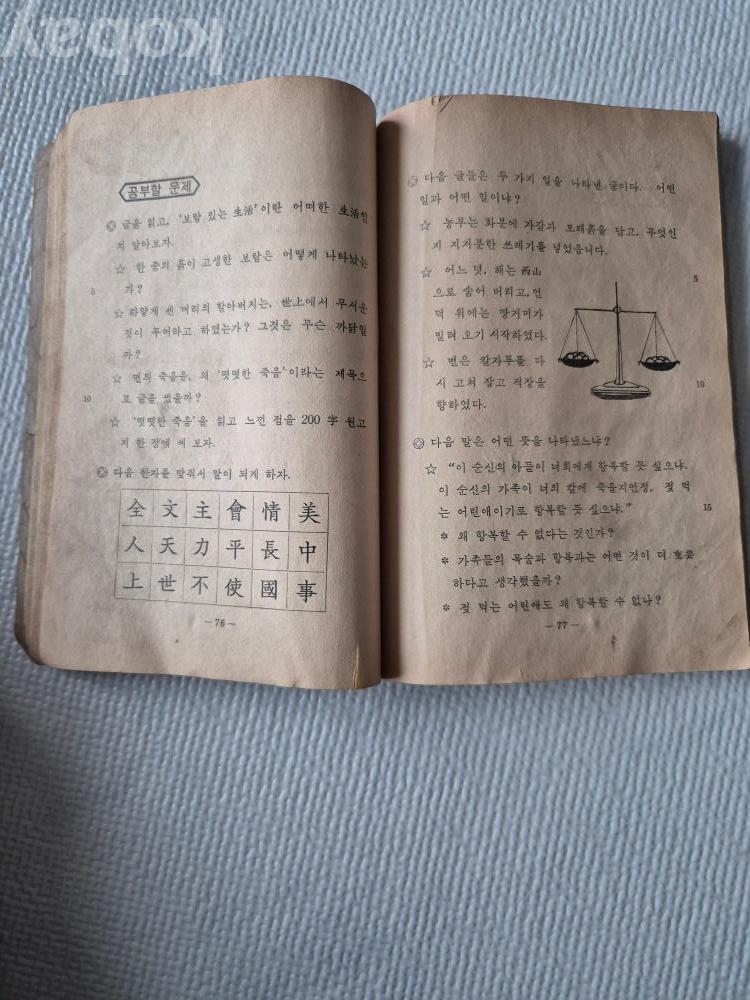 kobay
공부할 문제
글을 읽고, '보람 있는 生活'이란 어떠한 生活인
지 알아보자.
☆ 한 줌의 흙이 고생한 보람은 어떻게 나타났는
5 가?
☆ 하얗게 센 머리의 할아버지는, 世上에서 무서운
것이 무어라고 하였는가? 그것은 무슨 까닭일
까?
☆ 면의 죽음을, 왜 '떳떳한 죽음'이라는 제목으
10 로 글을 썼을까?
☆ '떳떳한 죽음'을 읽고 느낀 점을 200 字 원고
지 한 장에 써 보자.
다음 한자를 맞춰서 말이 되게 하자.
全 文 主 會 情 美
人 天 力 平 長 中
上 世 不 使 國 事
— 76 —
다음 글들은 두 가지 일을 나타낸 글이다. 어떤
일과 어떤 일이냐?
☆ 농부는 화분에 자갈과 모래흙을 담고, 무엇인
지 지저분한 쓰레기를 넣었읍니다.
☆ 어느 덧, 해는 西山 5
으로 숨어 버리고, 언
덕 위에는 땅거미가
밀려 오기 시작하였다.
☆ 면은 칼자루를 다
시 고쳐 잡고 적장을 10
향하였다.
다음 말은 어떤 뜻을 나타냈느냐?
☆ "이 순신의 아들이 너희에게 항복할 듯 싶으냐.
이 순신의 가족이 너의 칼에 죽을지언정, 젖 먹
는 어린애이기로 항복할 듯 싶으냐." 15
* 왜 항복할 수 없다는 것인가?
* 가족들의 목숨과 항복과는 어떤 것이 더 重要
하다고 생각했을까?
* 젖 먹는 어린애도 왜 항복할 수 없나?
— 77 —